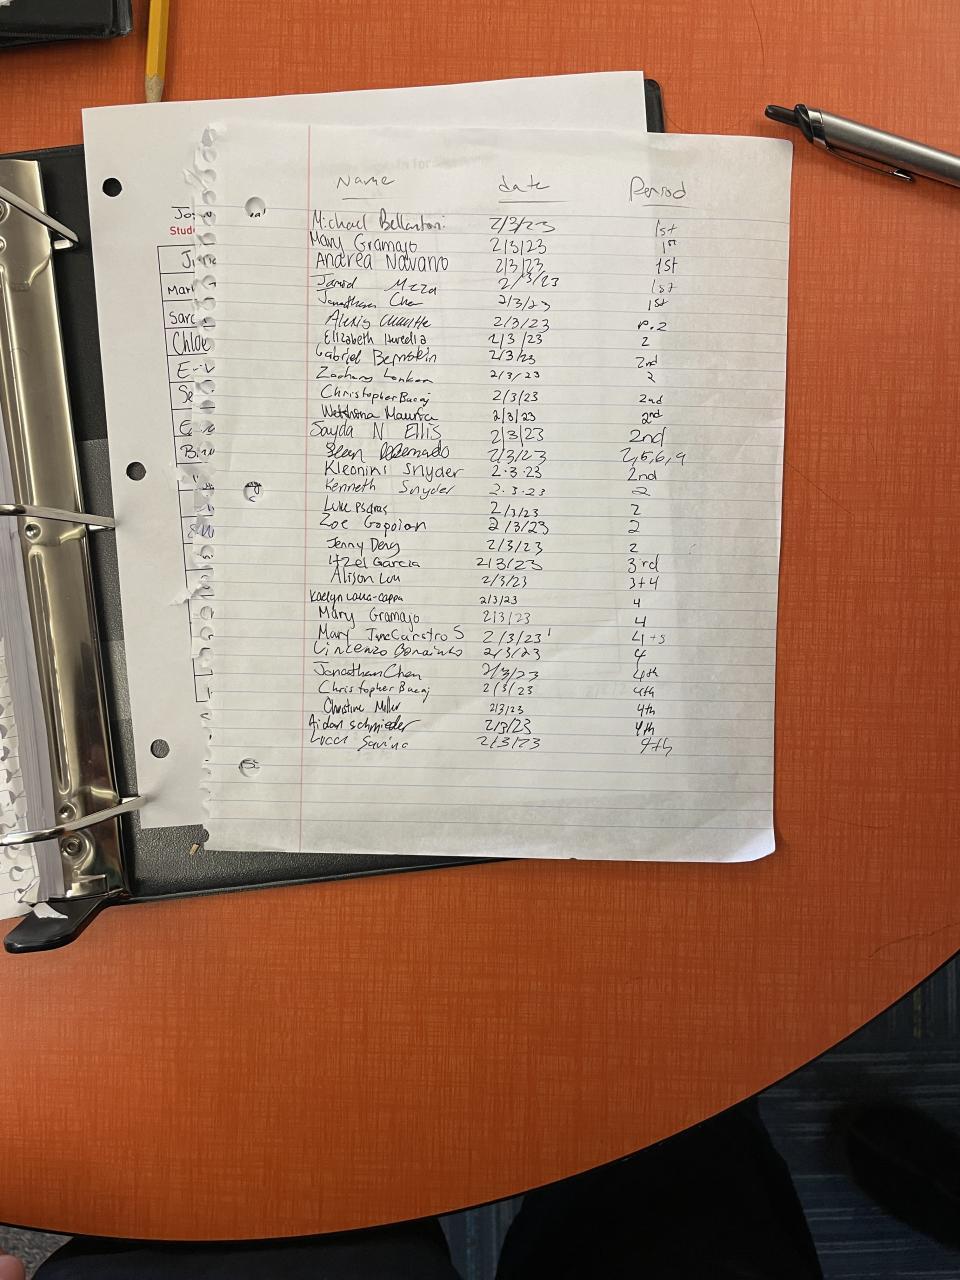 Name date Period
Michael Bellantoni 2/3/23 1st
Mary Gramajo 2/3/23 1st
Andrea Navarro 2/3/23 1st
Jarod Meza 2/3/23 1st
Jonathan Chen 2/3/23 1st
Alexis 2/3/23 P.2
Elizabeth Heredia 2/3/23 2
Gabriel Bernstein 2/3/23 2nd
Zachary 2/3/23 2
Christopher Bucaj 2/3/23 2nd
2/3/23 2nd
Sayda N Ellis 2/3/23 2nd
Sean 2/3/23 2,5,6,9
Kleonini Snyder 2.3.23 2nd
Kenneth Snyder 2.3.23 2
Luke Psaras 2/3/23 2
Zoe Gopoian 2/3/23 2
Jenny Deng 2/3/23 2
Itzel Garcia 2/3/23 3rd
Alison Lou 2/3/23 3+4
Kaelyn 2/3/23 4
Mary Gramajo 2/3/23 4
Mary Jane Castro S 2/3/23 4+5
Vincenzo 2/3/23 4
Jonathan Chen 2/3/23 4th
Christopher Bucaj 2/3/23 4th
Christine Miller 2/3/23 4th
Aidan Schmieder 2/3/23 4th
Lucca Savino 2/3/23 9th
Stude
Mari
Sara
Chloe